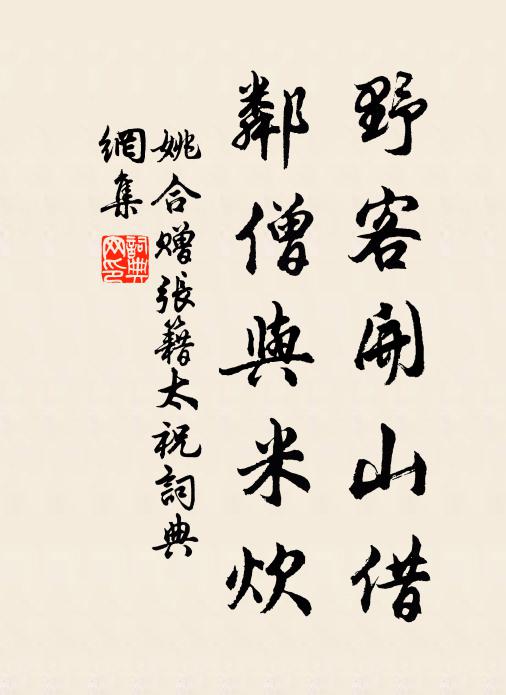 野客開山借
鄰僧與米炊
姚合贈張籍太祝詞典
網集
詞典
网印